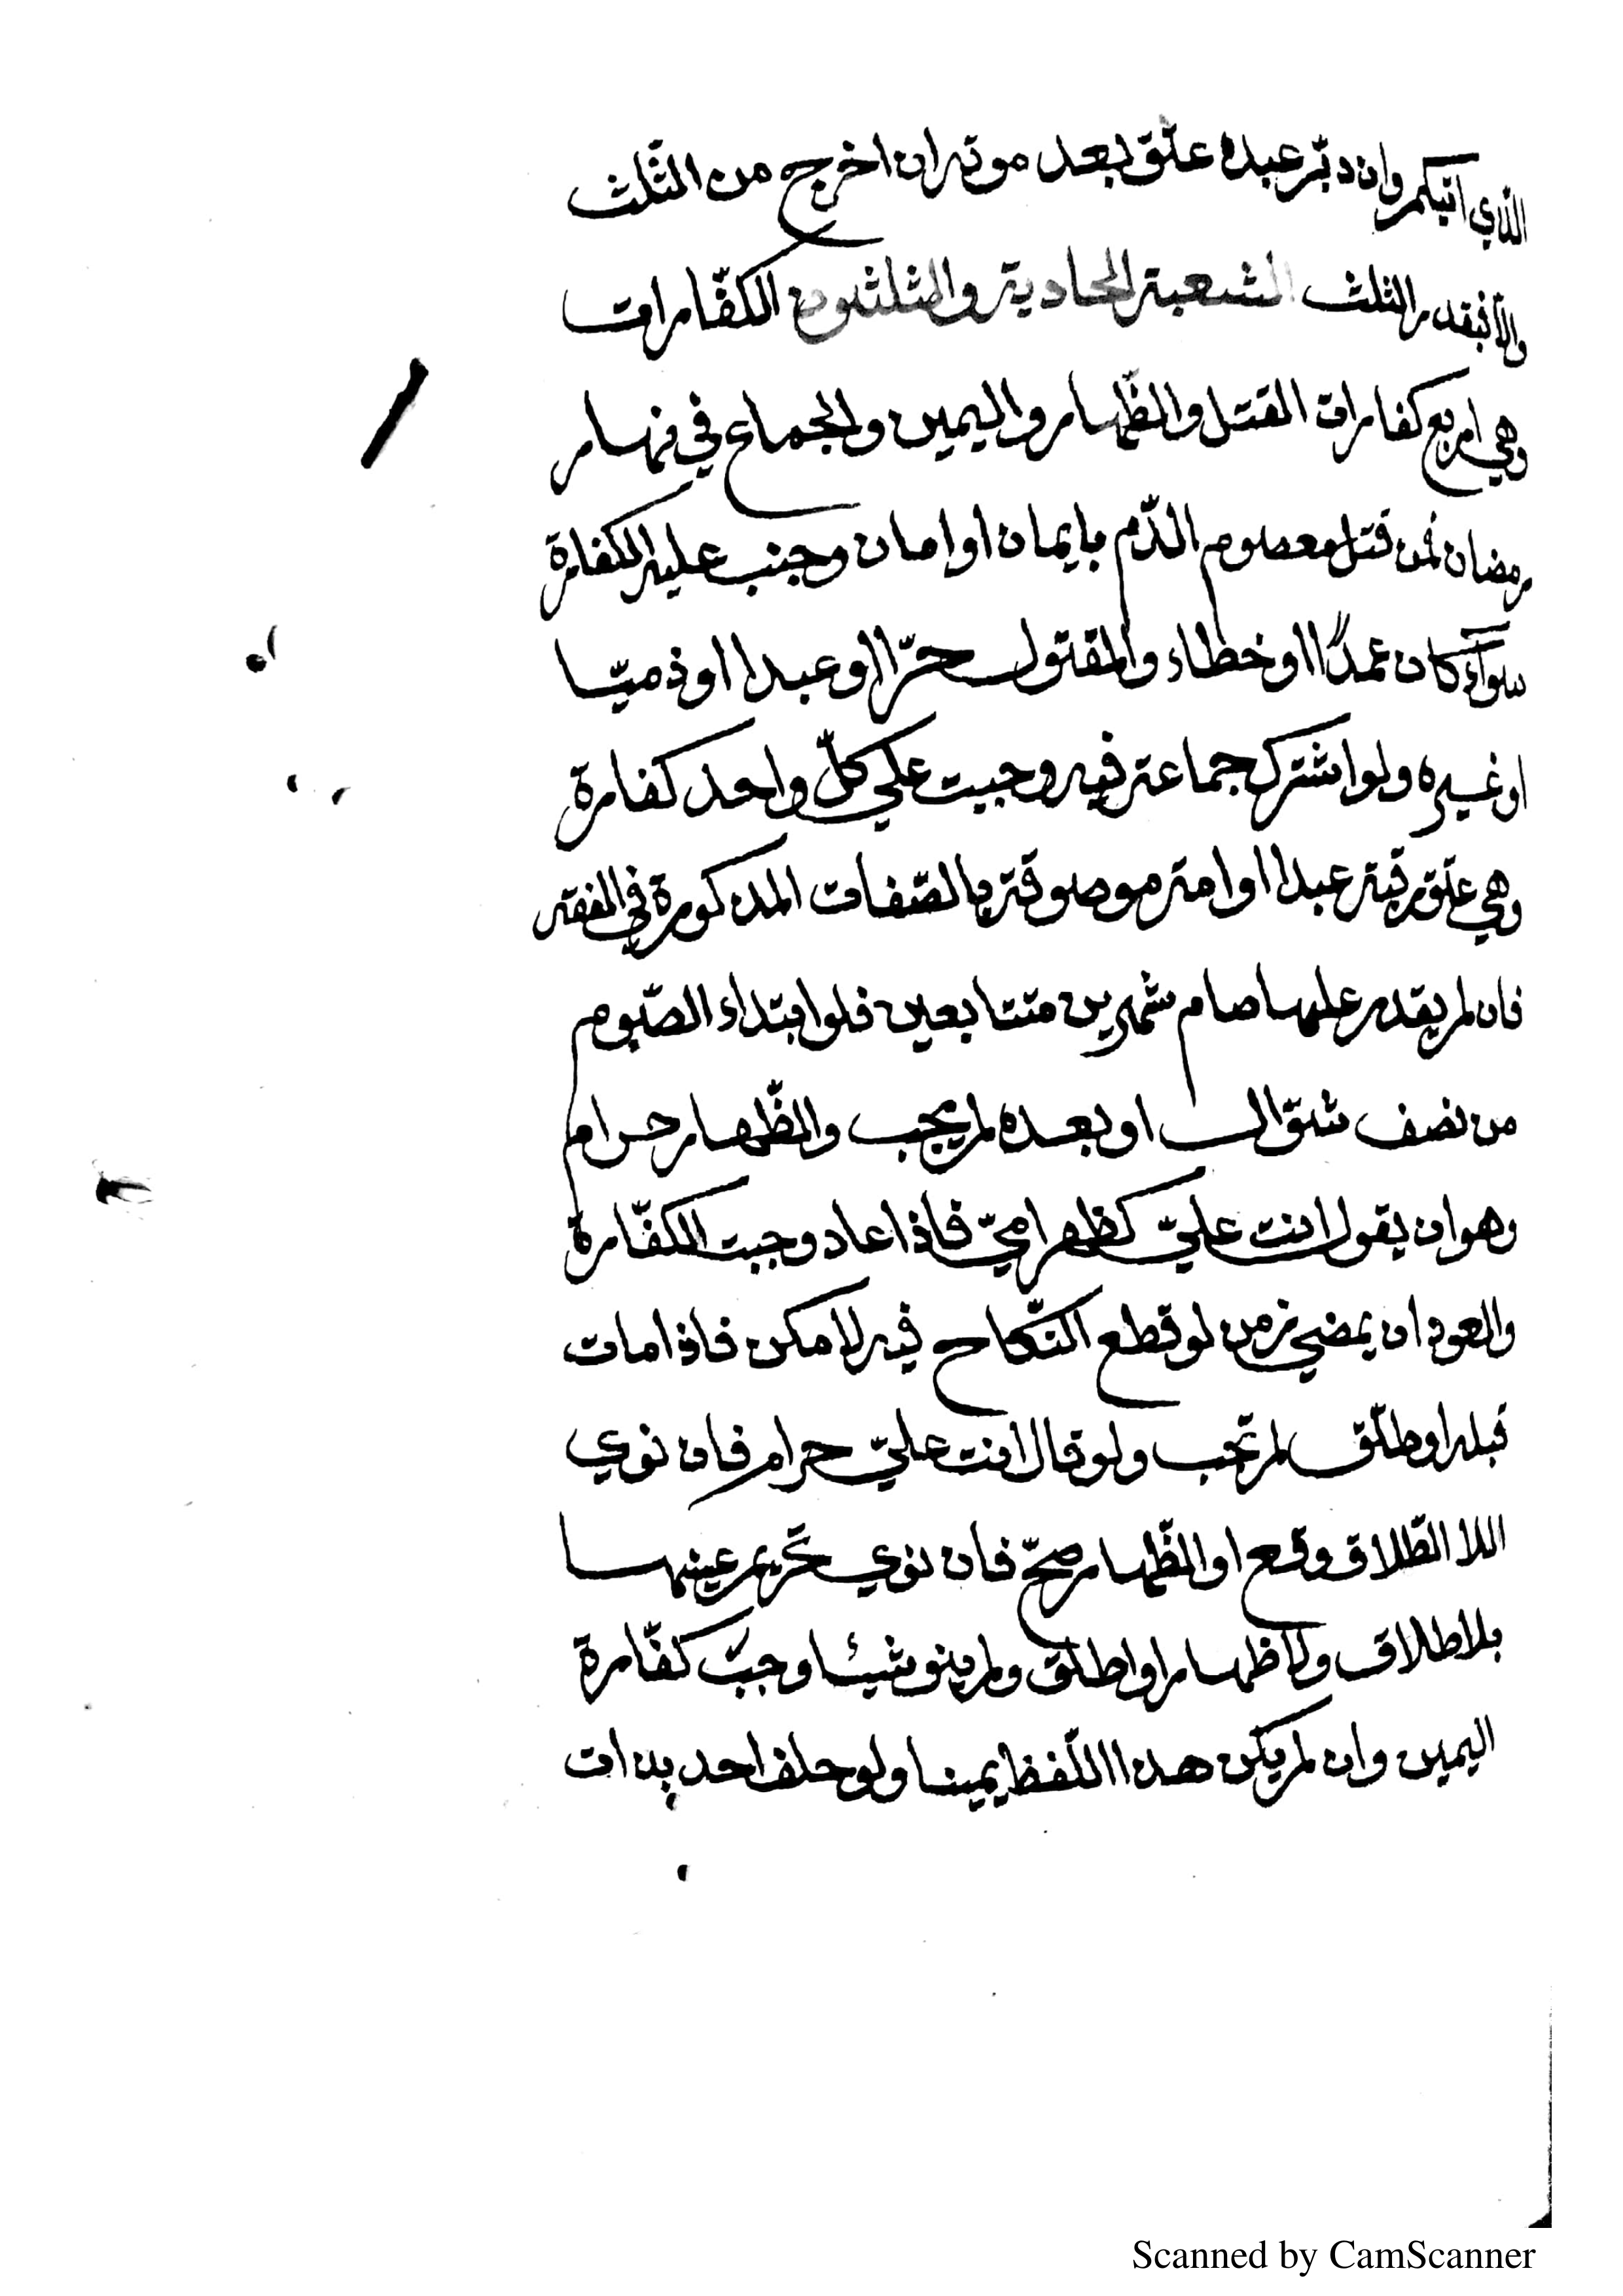 الذي اتيكم وان دبّر عبده عتق بعد موته ان اخرج من الثّلث
والّا فبقدر الثلث الشعبة الحادية والثلثون الكفّارات
وهي اربع كفارات القتل والظّهار واليمين والجماع في نهار
رمضان فمن قتل معصوم الدّم بايمان او امان وجبت عليه الكفارة
سوآء كان عمدًا او خطاء والمقتول حرّا او عبدا او ذميّا
او غيره ولو اشترك جماعة فيه وجبت علي كلّ واحد كفارة
وهي عتق رقبة عبدا او امة موصوفة بالصّفات المذكورة في الفقه
فان لم يقدر عليها صام شهرين متتابعين فلو ابتداء الصّوم
من نصف شوّال او بعده لم يجب والظّهار حرام
وهو ان يقول انت عليّ كظهر امّي فاذا عاد وجبت الكفّارة
والعود ان يمضي زمن لو قطع النّكاح فيه لامكن فاذا مات
قبله او طلّق لم تجب ولو قال انت عليّ حرام فان نوي
اللا الطّلاق وقع او الظّهار صحّ فان نوي تحريم عينها
بلا طلاق ولا ظهار او اطلق ولم ينو شيئا وجبت كفّارة
اليمين وان لم يكن هذا اللّفظ يمينا ولو حلف احد بذات
Scanned by CamScanner